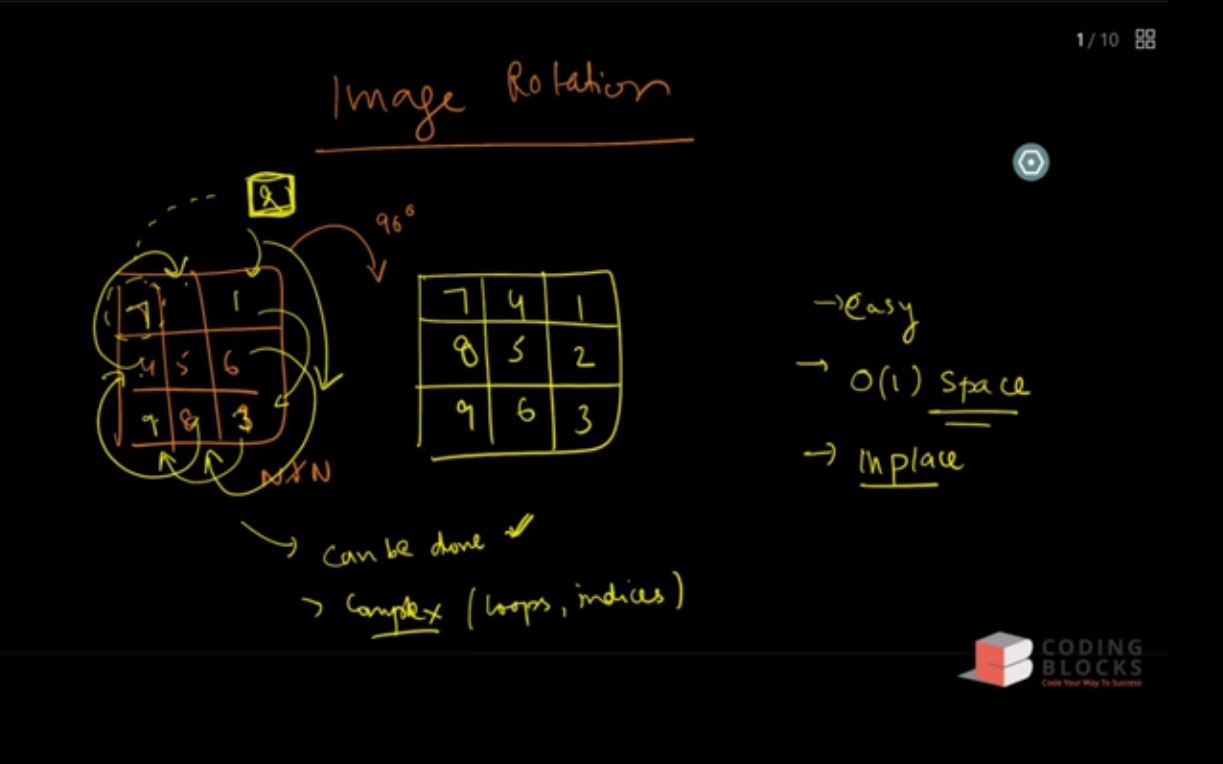 1 / 10
Image Rotation
2
90°
7 1
4 5 6
9 8 3
N×N
7 4 1
8 5 2
9 6 3
→ easy
→ O(1) Space
→ Inplace
→ Can be done ✓
> Complex (loops, indices)
CODING
BLOCKS
Code Your Way To Success